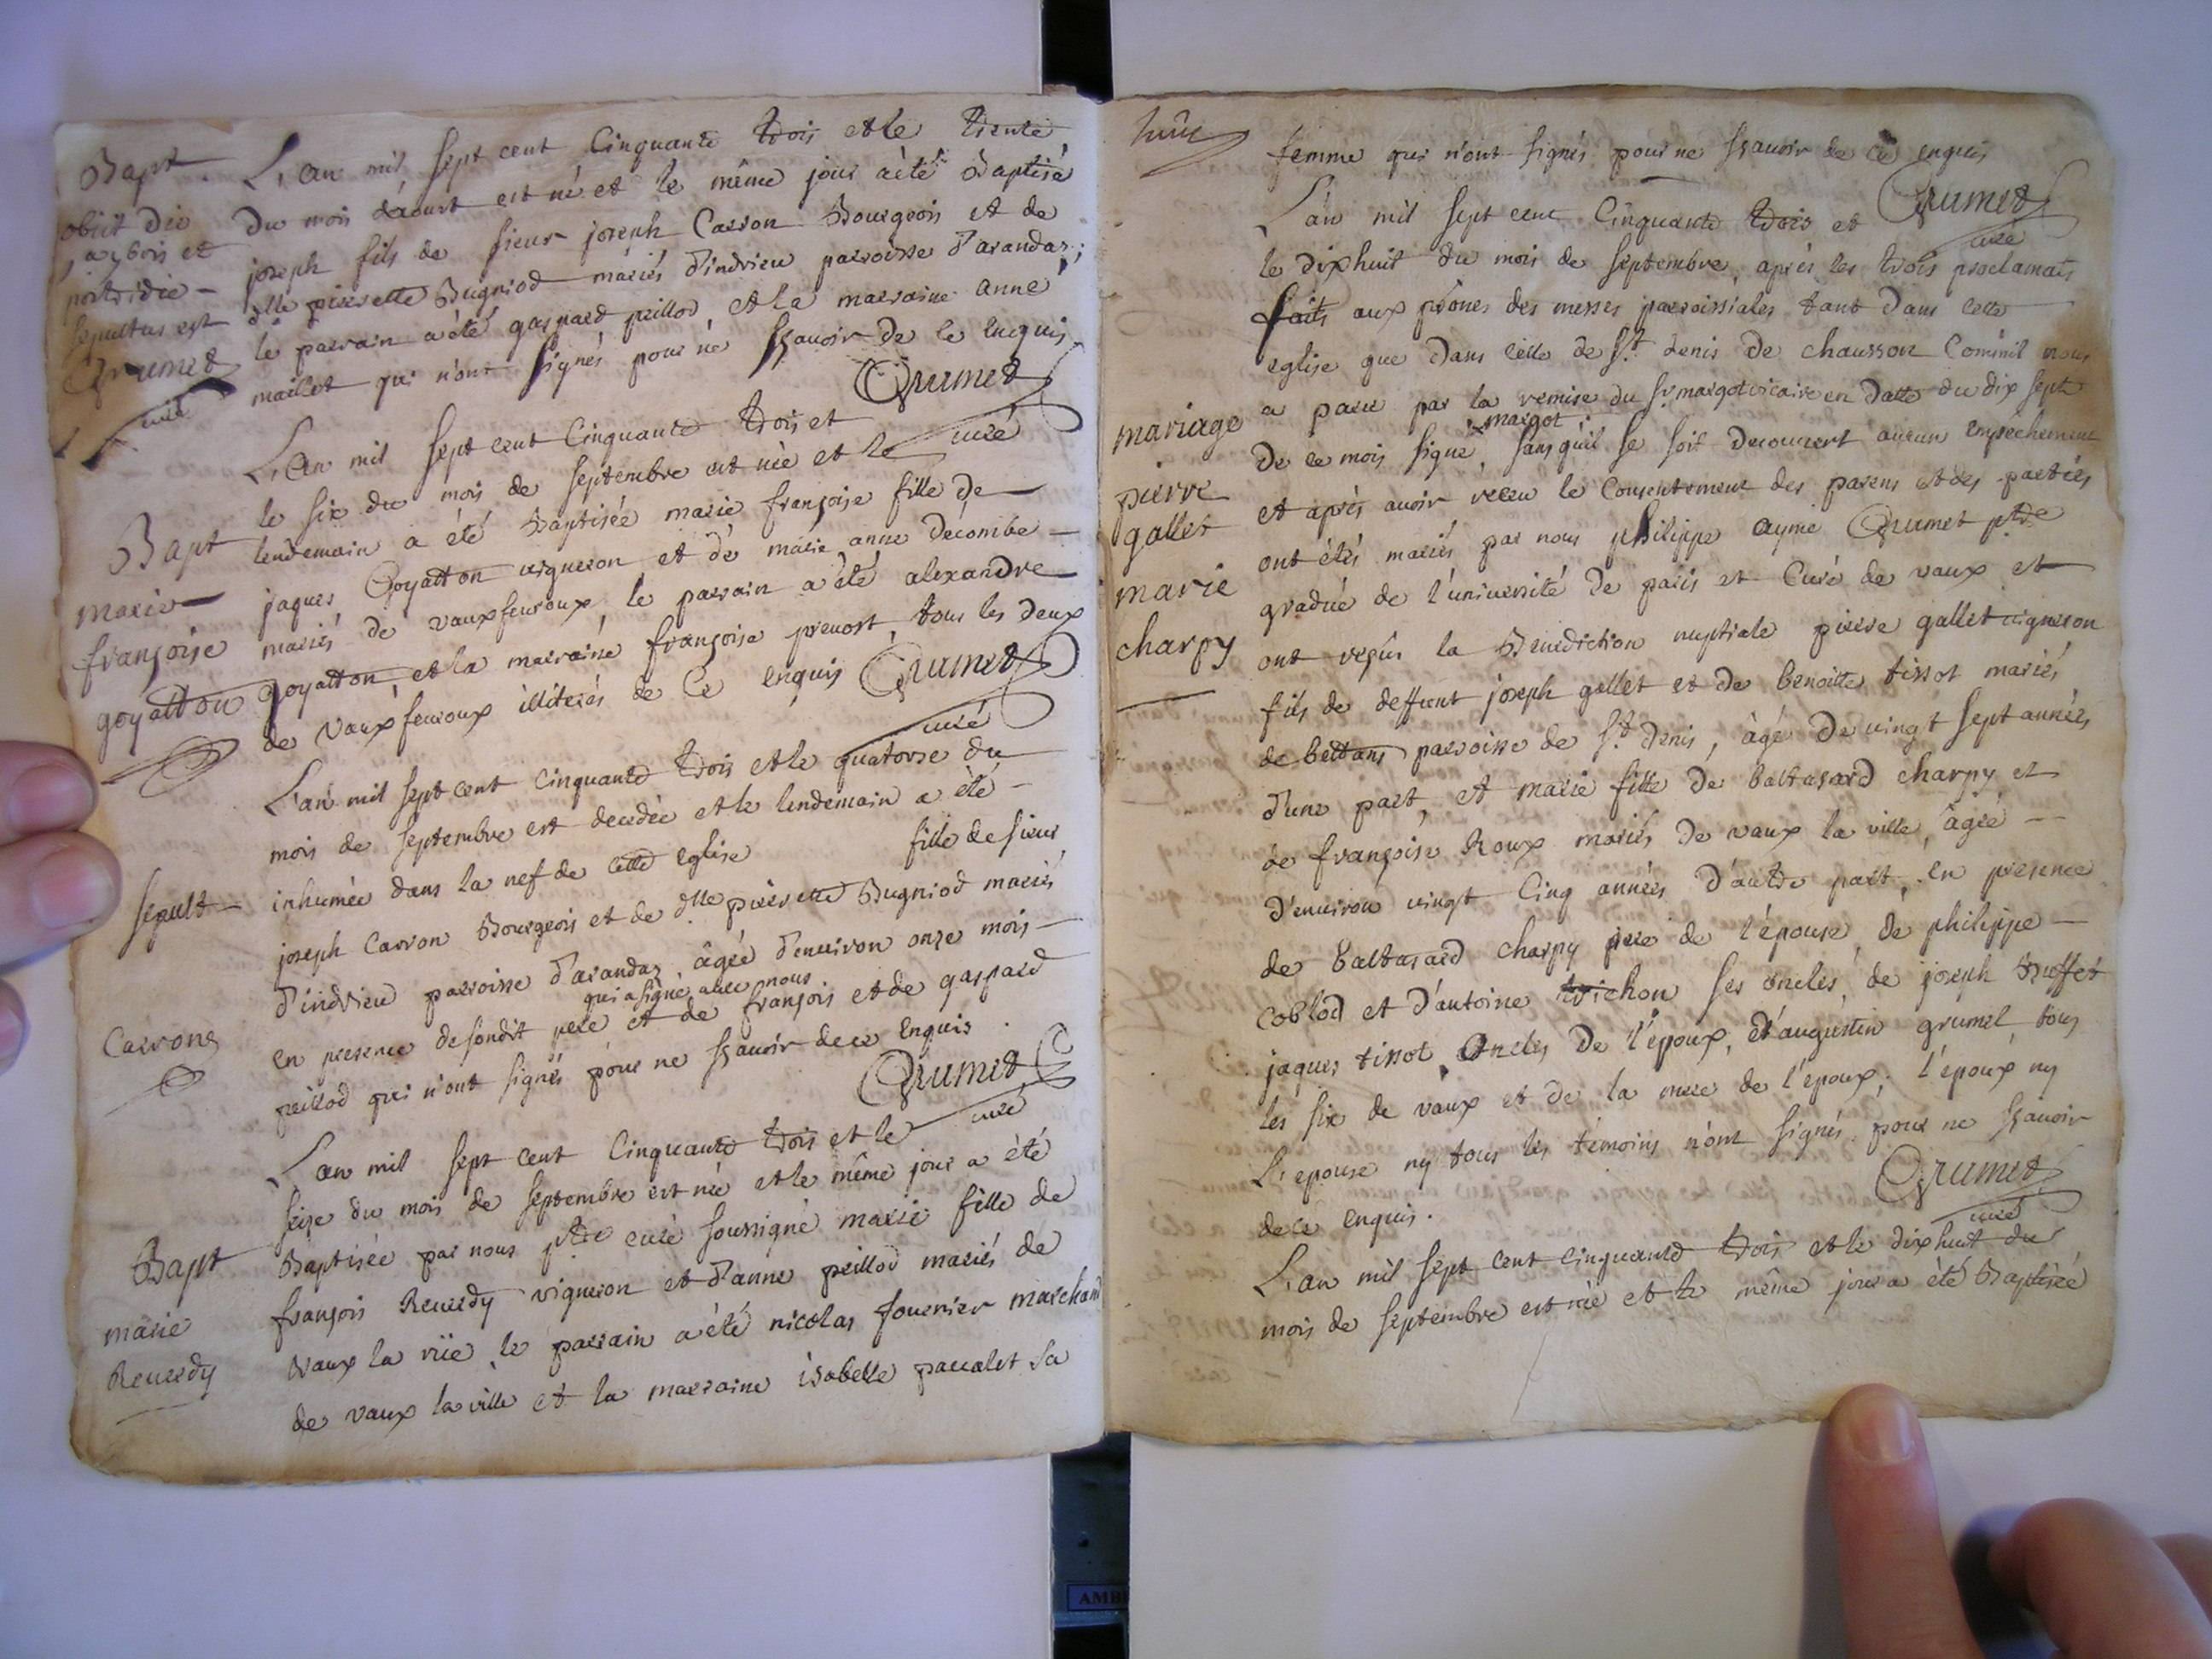 Bapt.
obiit die
et
postridie
sepultus est
Grumet
curé
L'an mil sept cent cinquante trois et le trente
du mois d'aoust est né et le même jour a été Baptisé
joseph fils de sieur joseph Carron Bourgeois et de
dlle pierrette Bugniod mariés d'indrieu parroisse d'arandaz;
le parrain a été gaspard peillod, et la marraine anne
maillet qui n'ont signés pour ne sçavoir de ce enquis
Grumet
curé
Bapt
marie
françoise
goyatton
L'an mil sept cent cinquante trois et
le six du mois de septembre est née et le
lendemain a été Baptisée marie françoise fille de
jaques Goyatton vigneron et de marie anne decombe
mariés de vauxfevroux, le parrain a été alexandre
goyatton, et la marraine françoise prevost, tous les deux
de vauxfevroux illiterés de ce enquis Grumet
curé
sepult
Carrone
L'an mil sept cent cinquante trois et le quatorse du
mois de septembre est decedée et le lendemain a été
inhumée dans la nef de cette eglise fille de sieur
joseph Carron Bourgeois et de dlle pierrette Bugniod mariés
d'indrieu parroisse d'arandaz, âgée d'environ onze mois
qui a signé avec nous
en presence de sondit pere et de françois et de gaspard
peillod qui n'ont signés pour ne sçavoir de ce enquis.
Grumet
curé
Bapt
marie
Reverdy
L'an mil sept cent cinquante trois et le
seise du mois de septembre est née et le même jour a été
Baptisée par nous ptre curé soussigné marie fille de
françois Reverdy vigneron et d'anne peillod mariés de
vaux la rüe, le parrain a été nicolas fournier marchand
de vaux la ville et la marraine isabelle pacalet sa
femme qui n'ont signés pour ne sçavoir de ce enquis
Grumet
curé
mariage
pierre
gallet
marie
charpy
L'an mil sept cent cinquante trois et
le dixhuit du mois de septembre, après les trois proclamats
faits aux prônes des messes parroissiales tant dans cette
eglise que dans celle de St denis de chausson comm'il nous
a paru par la remise du sr margot vicaire en datte du dix sept
margot
de ce mois signé, sans qu'il se soit decouvert aucun empéchement
et après avoir receu le consentement des parens et des parties
ont étés mariés par nous philippe aymé Grumet ptre
gradué de l'université de paris et Curé de vaux et
ont reçus la Benediction nuptiale pierre gallet vigneron
fils de deffunt joseph gallet et de benoitte tissot mariés
de bettans parroisse de St denis, âgé de vingt sept années
d'une part, et marie fille de baltasard charpy et
de françoise Roux mariés de vaux la ville, âgée
d'environ vingt cinq années d'autre part, en presence
de baltasard charpy pere de l'épouse, de philippe
coblod et d'antoine trichon ses oncles, de joseph Buffet
jaques tissot oncles de l'époux, et d'augustin grumel tous
les six de vaux et de la mere de l'époux; l'époux ny
L'epouse ny tous les témoins n'ont signés pour ne sçavoir
de ce enquis.
Grumet
curé
L'an mil sept cent cinquante trois et le dixhuit du
mois de septembre est née et le même jour a été Baptisée